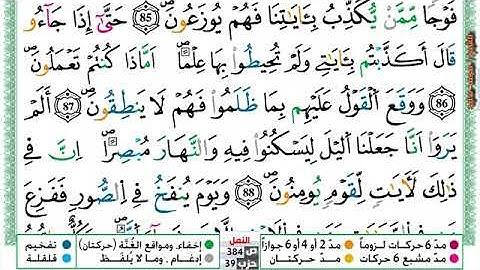 فَوْجًا مِّمَّن يُكَذِّبُ بِـَٔايَٰتِنَا فَهُمْ يُوزَعُونَ 85 حَتَّىٰٓ إِذَا جَآءُو
قَالَ أَكَذَّبْتُم بِـَٔايَٰتِے وَلَمْ تُحِيطُوا۟ بِهَا عِلْمًا اَمَّاذَا كُنتُمْ تَعْمَلُونَ
86 وَوَقَعَ اَلْقَوْلُ عَلَيْهِم بِمَا ظَلَمُوا۟ فَهُمْ لَا يَنطِقُونَ 87 أَلَمْ
يَرَوْا۟ اَنَّا جَعَلْنَا اَلَيْلَ لِيَسْكُنُوا۟ فِيهِ وَالنَّهَارَ مُبْصِرًا اِنَّ فِے
ذَٰلِكَ لَأٓيَٰتٍ لِّقَوْمٍ يُومِنُونَ 88 وَيَوْمَ يُنفَخُ فِے اِلصُّورِ فَفَزِعَ
مَن فِے اِلسَّمَٰوَٰتِ وَمَن فِے اِلْأَرْضِ إِلَّا
مدّ 6 حركات لزوماً مدّ 2 أو 4 أو 6 جوازاً النمل ص 384 إخفاء، ومواقع الغُنَّة (حركتان) تفخيم
مدّ مشبع 6 حركات مدّ حركتان حزب 39 إدغام، وما لا يُلفَظ قلقلة